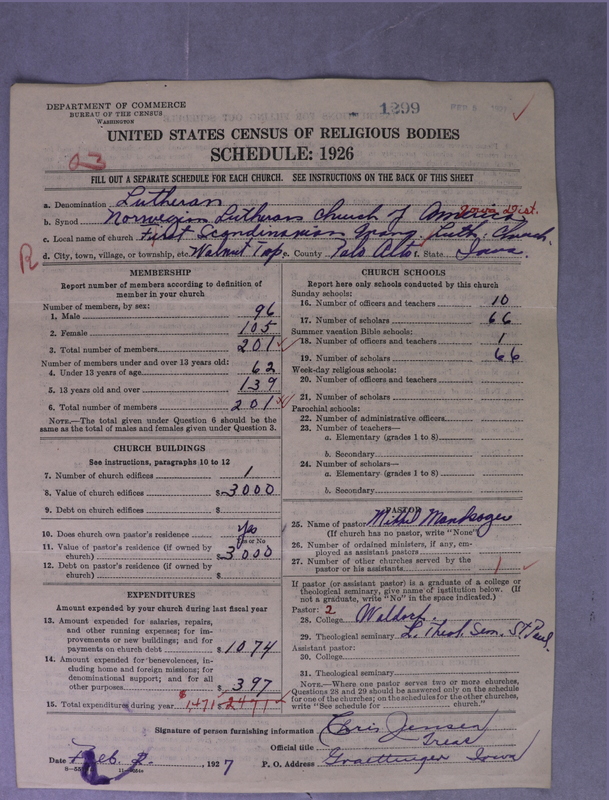 DEPARTMENT OF COMMERCE
BUREAU OF THE CENSUS
WASHINGTON
1299
UNITED STATES CENSUS OF RELIGIOUS BODIES
SCHEDULE: 1926
FILL OUT A SEPARATE SCHEDULE FOR EACH CHURCH. SEE INSTRUCTIONS ON THE BACK OF THIS SHEET
a. Denomination Lutheran
b. Synod Norwegian Lutheran Church of America Iowa Dist.
c. Local name of church First Scandinavian Evang. Luth. Church.
d. City, town, village, or township, etc. Walnut Twp e. County Palo Alto f. State Iowa
R
MEMBERSHIP
Report number of members according to definition of
member in your church
Number of members, by sex:
1. Male 96
2. Female 105
3. Total number of members 201
Number of members under and over 13 years old:
4. Under 13 years of age 62
5. 13 years old and over 139
6. Total number of members 201
NOTE.—The total given under Question 6 should be
same as the total of males and females given under Question 3.
CHURCH BUILDINGS
See instructions, paragraphs 10 to 12
7. Number of church edifices 1
8. Value of church edifices $3000
9. Debt on church edifices $
10. Does church own pastor's residence? Yes
Yes or No
11. Value of pastor's residence (if owned by
church) $3000
12. Debt on pastor's residence (if owned by
church) $
EXPENDITURES
Amount expended by your church during last fiscal year
13. Amount expended for salaries, repairs,
and other running expenses; for im-
provements or new buildings; and for
payments on church debt $1074
14. Amount expended for benevolences, in-
cluding home and foreign missions; for
denominational support; and for all
other purposes $397
15. Total expenditures during year $1,471
CHURCH SCHOOLS
Report here only schools conducted by this church
Sunday schools:
16. Number of officers and teachers 10
17. Number of scholars 66
Summer vacation Bible schools:
18. Number of officers and teachers 1
19. Number of scholars 66
Week-day religious schools:
20. Number of officers and teachers
21. Number of scholars
Parochial schools:
22. Number of administrative officers
23. Number of teachers—
a. Elementary (grades 1 to 8)
b. Secondary
24. Number of scholars—
a. Elementary (grades 1 to 8)
b. Secondary
PASTOR
25. Name of pastor
(If church has no pastor, write "None")
26. Number of ordained ministers, if any, em-
ployed as assistant pastors
27. Number of other churches served by the
pastor or his assistants 1
If pastor (or assistant pastor) is a graduate of a college or
theological seminary, give name of institution below. (If
not a graduate, write "No" in the space indicated.)
Pastor: 2
28. College Waldorf
29. Theological seminary L. Theol. Sem. St Paul.
Assistant pastor:
30. College
31. Theological seminary
NOTE.—Where one pastor serves two or more churches,
Questions 28 and 29 should be answered only on the schedule
for one of the churches; on the schedules for the other churches,
write "See schedule for church."
Signature of person furnishing information Chris Jensen
Official title Treas
Date Feb. 2, 1927 P. O. Address Graettinger Iowa